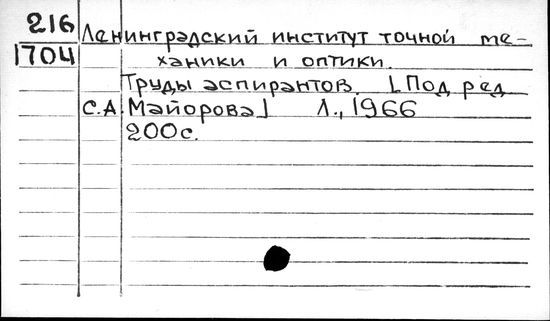 216 Ленинградский институт точной ме-
1704 ханики и оптики.
Труды аспирантов. [Под ред
С.А. Майорова] Л., 1966
200с.